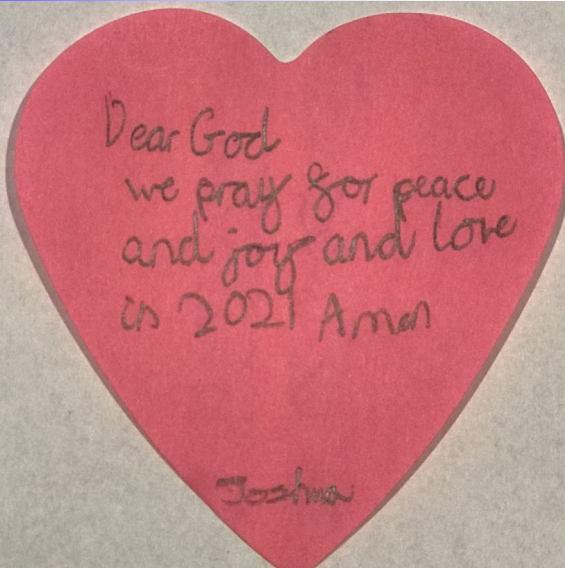 Dear God
we pray for peace
and joy and love
in 2021 Amen
Joshua